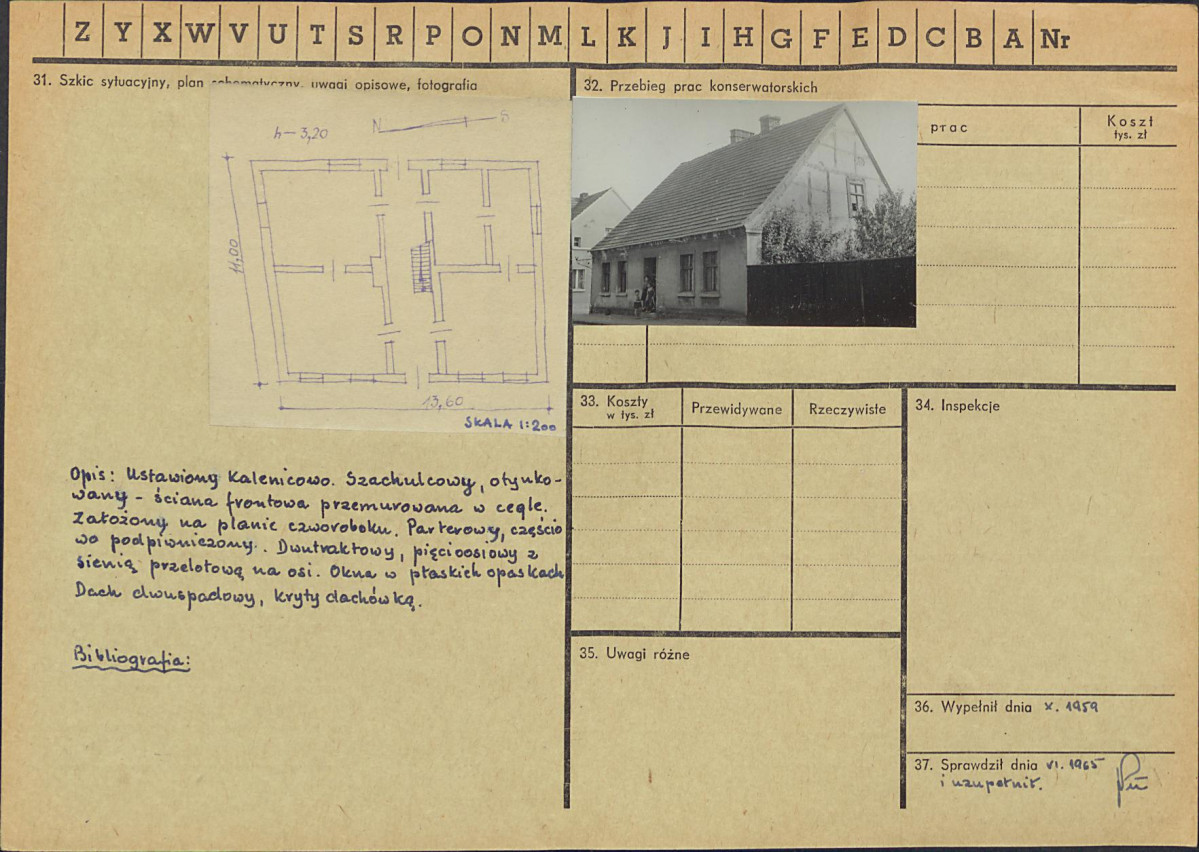 Z Y X W V U T S R P O N M L K J I H G F E D C B A Nr
31. Szkic sytuacyjny, plan schematyczny, uwagi opisowe, fotografia
h-3,20
N S
11,00
13,60
SKALA 1:200
Opis: Ustawiony kalenicowo. Szachulcowy, otynko-
wany - ściana frontowa przemurowana w cegle.
Założony na planie czworoboku. Parterowy, częścio
wo podpiwniczony. Dwutraktowy, pięcioosiowy z
sienią przelotową na osi. Okna w płaskich opaskach
Dach dwuspadowy, kryty dachówką.
Bibliografia:
32. Przebieg prac konserwatorskich
prac
Koszt
tys. zł
33. Koszty
w tys. zł
Przewidywane
Rzeczywiste
34. Inspekcje
35. Uwagi różne
36. Wypełnił dnia X. 1959
37. Sprawdził dnia VI. 1965
i uzupełnił.